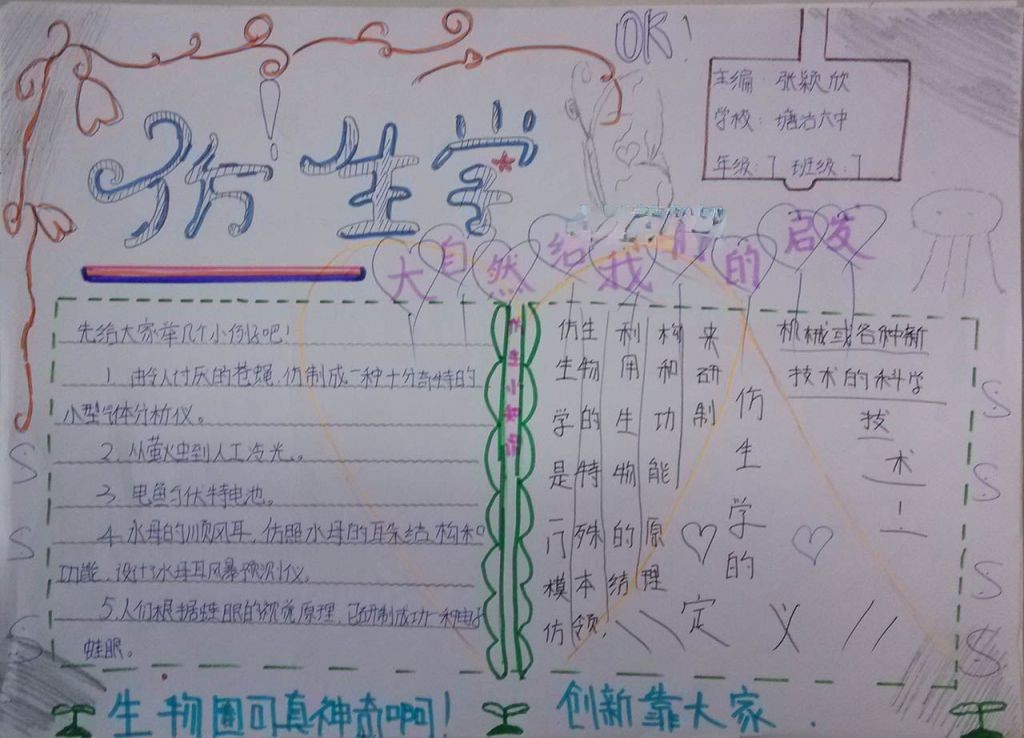 OK!
主编：张颖欣
学校：塘沽六中
年级：7 班级：7
仿生学
大自然给我们的启发
先给大家举几个小例子吧！
1. 由令人讨厌的苍蝇，仿制成一种十分奇特的
小型气体分析仪。
2. 从萤火虫到人工冷光。
3. 电鱼与伏特电池。
4. 水母的顺风耳，仿照水母的耳朵结构和
功能，设计了水母耳风暴预测仪。
5. 人们根据蛙眼的视觉原理，已研制成功一种电子
蛙眼。
仿生学是一门模仿
生物的特殊本领，
利用生物的结
构和功能原理
来研制
机械或各种新
技术的科学
技
术！
仿生学的
定义
生物圈可真神奇啊！
创新靠大家.